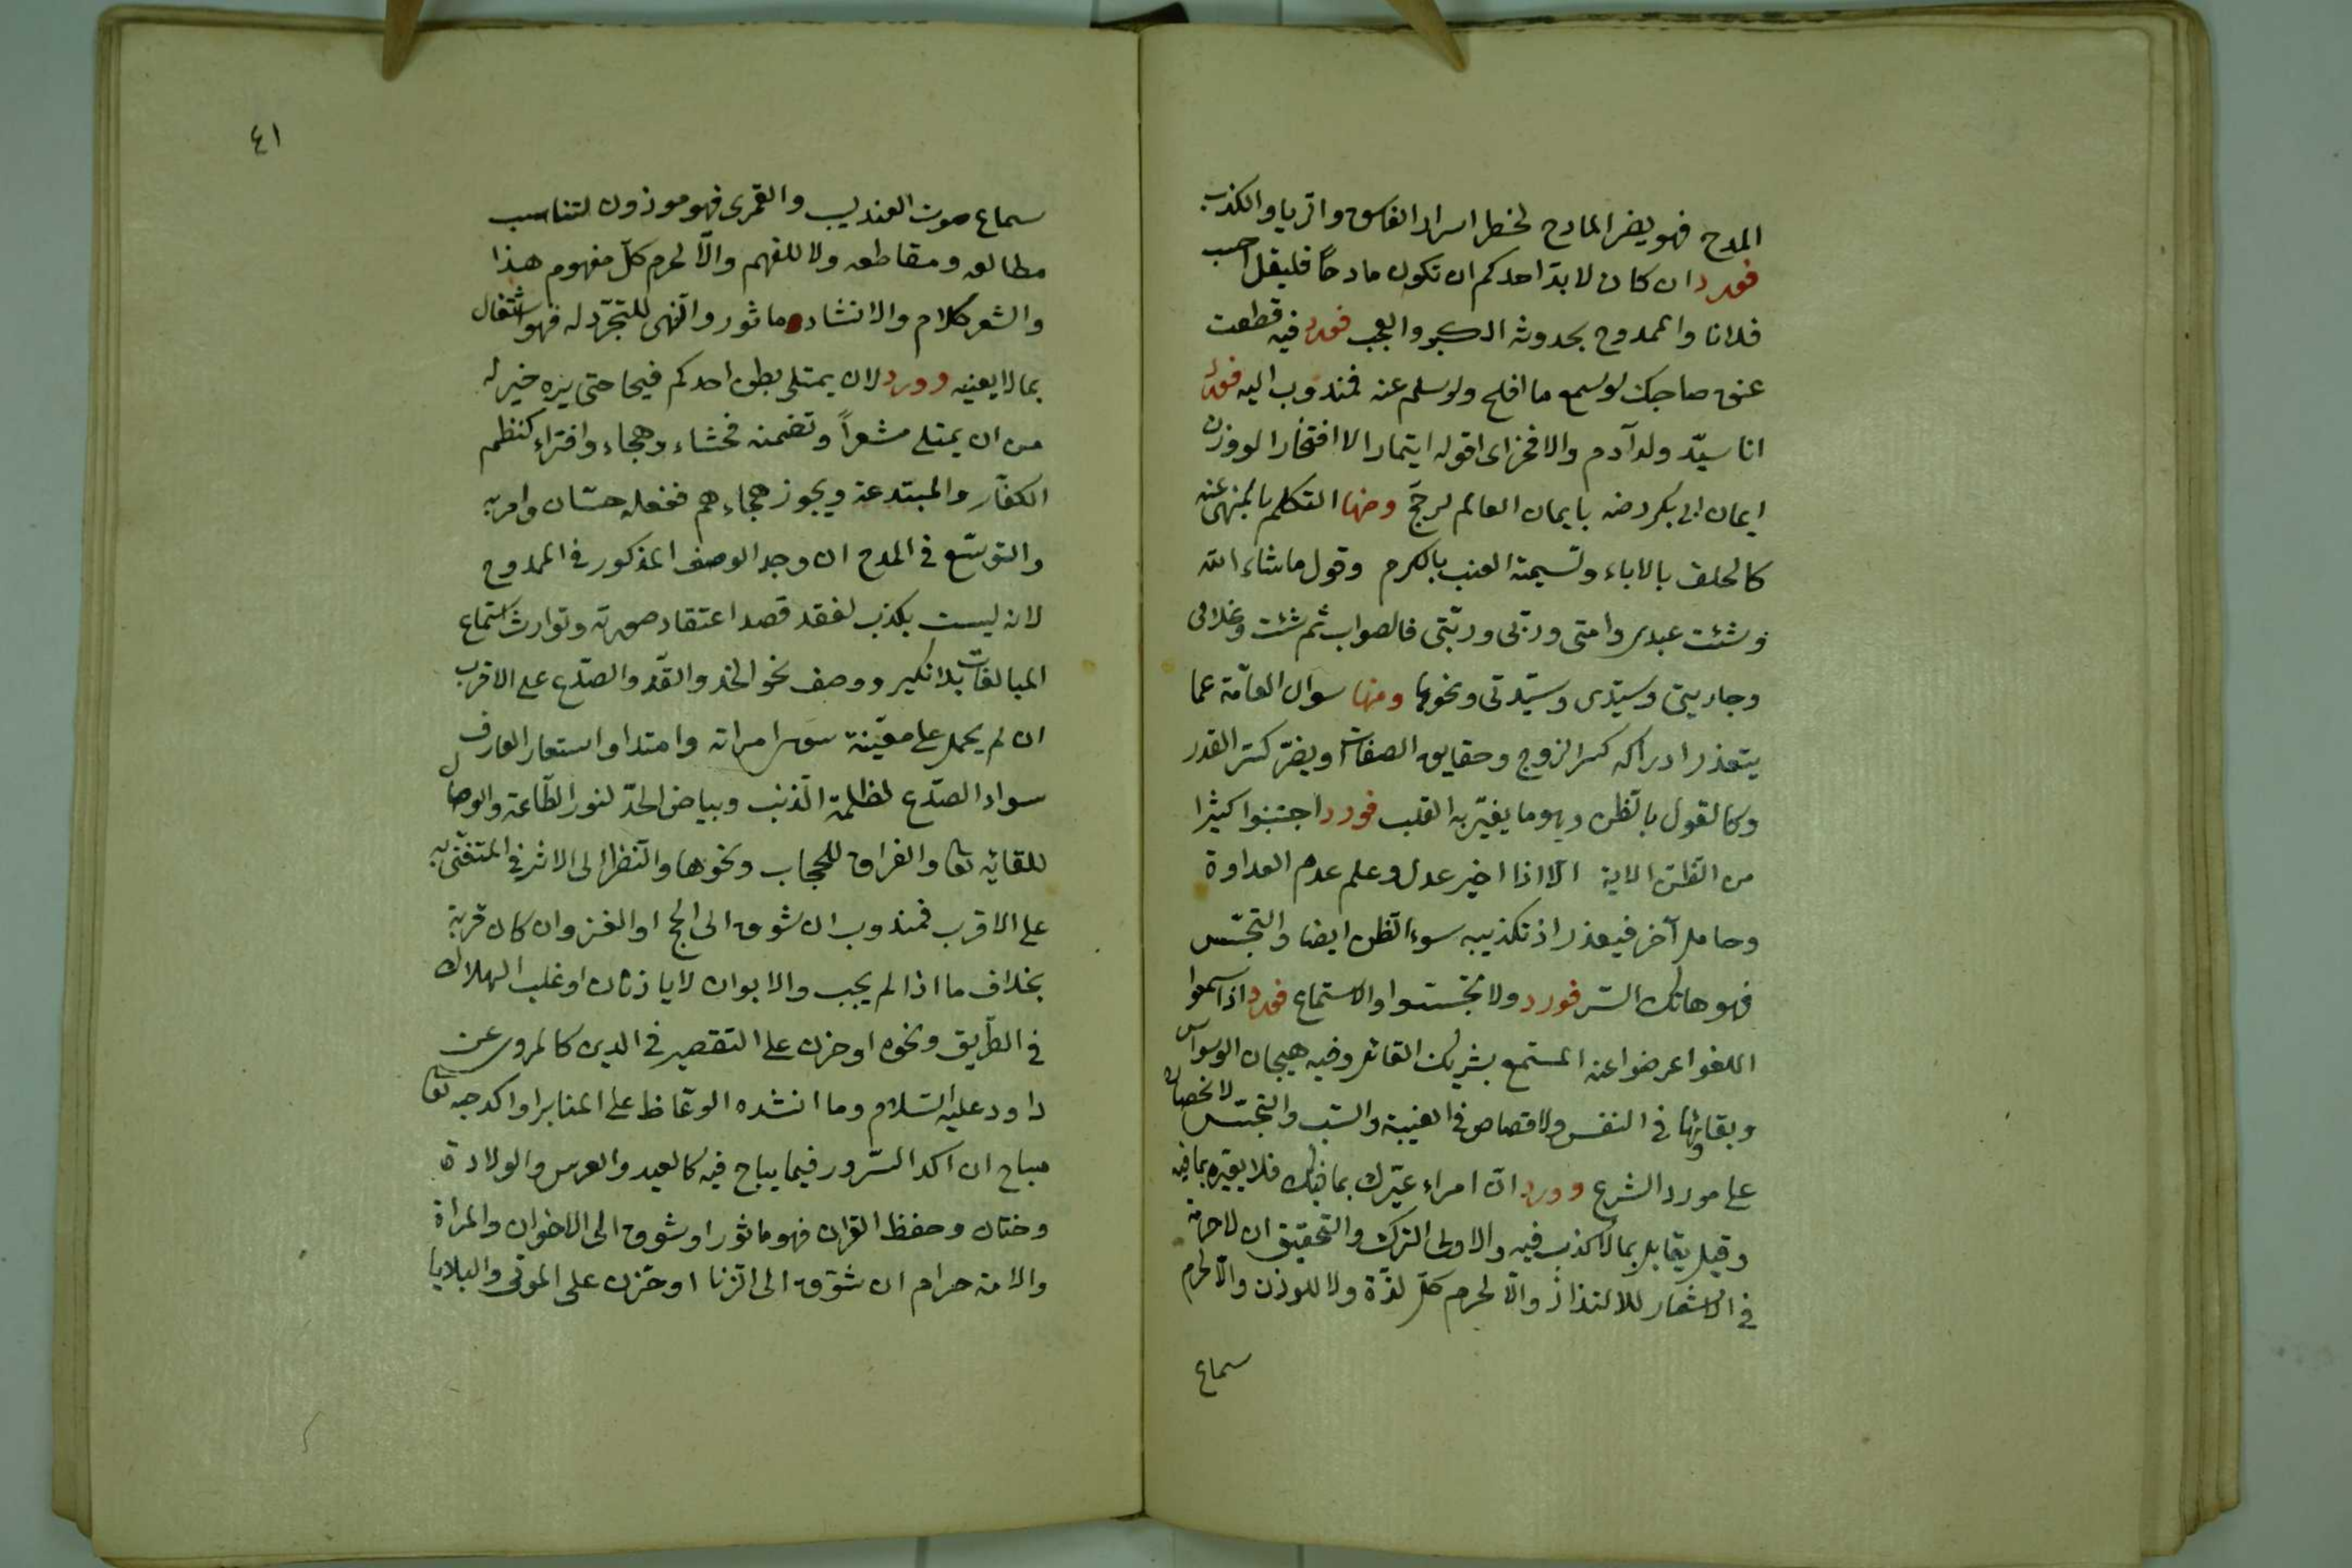 المدح فهو يضر المادح لخطر اسرار الفاسق والريا والكذب
فورد ان كان لا بد احدكم ان تكون مادحًا فليقل احسب
فلانا والممدوح بحدوث الكبر والعجب فورد فيه قطعت
عنق صاحبك لو سمع ما افلح ولو سلم عنه فمندوب اليه فورد
انا سيّد ولد آدم والا فخر اى اقوله ايتمارا لا افتخارا لو وزن
ايمان ابى بكر رضه بايمان العالم لرجح ومنها التكلم بالمنهى عنه
كالحلف بالاباء وتسيمة العنب بالكرم وقول ما شاء الله
وشئت عبدى وامتى وربى وربّتى فالصواب ثم شئت وغلامى
وجاريتى وسيّدى وسيّدتى ونحوها ومنها سوال العامّة عما
يتعذر ادراكه كسر الزوج وحقايق الصفات او يضرّ كسرّ القدر
وكالقول بالظن وهو ما يغيّر به القلب فورد اجتنبوا كثيرا
من الظن الاية الا اذا اخبر عدل وعلم عدم العداوة
وحامل آخر فيعذر اذ تكذيبه سوء الظن ايضا والتجسّس
فهو هاتك الستر فورد ولا تجسسوا والاستماع فورد اذا سمعوا
اللغو اعرضوا عنه المستمع شريك القائل وفيه هيجان الوسواس
وبقائها في النفس ولا قصاص في الغيبة والسّب والتجسّس لانحصاره
على مورد الشرع وورد انّ امراء عيّرك بما فيك فلا تعيّره بما فيه
وقيل يقابل بما لا كذب فيه والاولى الترك والتحقيق ان لا حرمة
في الاشعار للالتذاذ والّا لحرم كلّ لذّة ولا للوزن والّا لحرم
سماع
٤١
سماع صوت العندليب والقمرى فهو موزون لتناسب
مطالعه ومقاطعه ولا للفهم والّا لحرم كلّ مفهوم هذا
والشعر كلام والانشاد ماثور والنّهى للتجرّد له فهو اشتغال
بما لا يعنيه وورد لان يمتلى بطن احدكم قيحا حتى يره خير له
من ان يمتلى شعراً وتضمنه فحشاء وهجاء وافتراء كنظم
الكفّار والمبتدعة ويجوز هجاءهم ففعله حسّان وامر به
والتوسّع في المدح ان وجد الوصف المذكور في الممدوح
لانه ليست بكذب لفقد قصد اعتقاد صورته وتوارث استماع
المبالغات بلا نكير ووصف نحو الخد والقدّ والصدغ على الاقرب
ان لم يحمل على معيّنة سوى امراته وامته او استعار العارف
سواد الصدغ لظلمة الذنب وبياض الخدّ لنور الطّاعة والوصال
للقائه تعا والفراق للحجاب ونحوها والنّظر الى الاثر في المتغنّى به
على الاقرب فمندوب ان شوق الى الحج او الغزو ان كان قربة
بخلاف ما اذا لم يجب والابوان لا ياذنان او غلب الهلاك
في الطّريق ونحوه او حزن على التقصير في الدين كالمروى عن
داود عليه السّلام وما انشده الوعّاظ على المنابر او اكد حبه تعا
مباح ان اكد السّرور فيما يباح فيه كالعيد والعرس والولادة
وختان وحفظ القران فهو ماثور او شوق الى الاخوان والمراة
والامة حرام ان شوّق الى الزنا او حزن على الموتى والبلايا